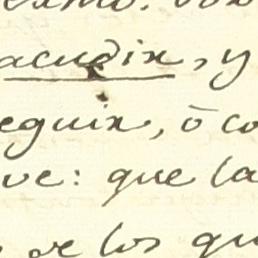 acudir, y
eguir, ò co
ve: que la
de los qu